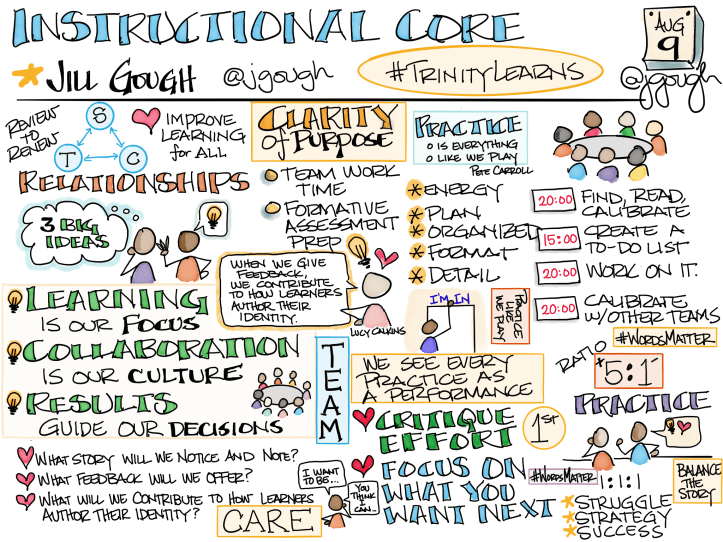 INSTRUCTIONAL CORE
AUG
9
JILL GOUGH @jgough
#TRINITYLEARNS
@jgough
REVIEW
TO
RENEW
S
T C
IMPROVE
LEARNING
for ALL
RELATIONSHIPS
3 BIG
IDEAS
CLARITY
of PURPOSE
TEAM WORK
TIME
FORMATIVE
ASSESSMENT
PREP
WHEN WE GIVE
FEEDBACK,
WE CONTRIBUTE
TO HOW LEARNERS
AUTHOR THEIR
IDENTITY.
LUCY CALKINS
PRACTICE
O IS EVERYTHING
O LIKE WE PLAY
PETE CARROLL
ENERGY
PLAN
ORGANIZED
FORMAT
DETAIL
20:00 FIND, READ,
CALIBRATE
15:00 CREATE A
TO-DO LIST
20:00 WORK ON IT.
20:00 CALIBRATE
W/OTHER TEAMS
#WORDSMATTER
I'M IN
PRACTICE
LIKE
WE PLAY
LEARNING
IS OUR FOCUS
COLLABORATION
IS OUR CULTURE
RESULTS
GUIDE OUR DECISIONS
TEAM
WE SEE EVERY
PRACTICE AS
A PERFORMANCE
RATIO
+5:1-
CRITIQUE
EFFORT
1ST
FOCUS ON
WHAT YOU
WANT NEXT
PRACTICE
#WORDSMATTER
1:1:1
STRUGGLE
STRATEGY
SUCCESS
BALANCE
THE
STORY
WHAT STORY WILL WE NOTICE AND NOTE?
WHAT FEEDBACK WILL WE OFFER?
WHAT WILL WE CONTRIBUTE TO HOW LEARNERS
AUTHOR THEIR IDENTITY?
CARE
I WANT
TO BE...
YOU
THINK
I
CAN...